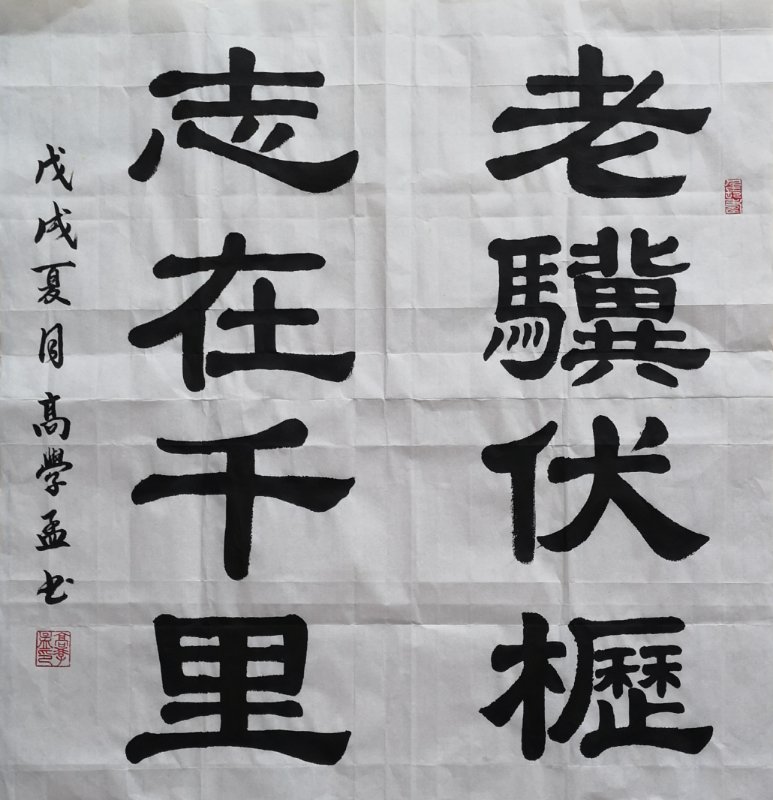 老驥伏櫪
志在千里
戊戌夏月高學孟书